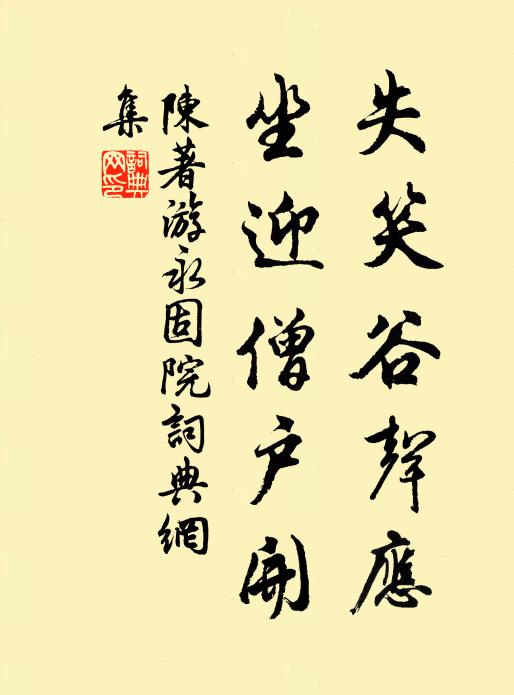 失笑谷聲應
坐迎僧户開
陳著游永固院詞典網
集
詞典
网印